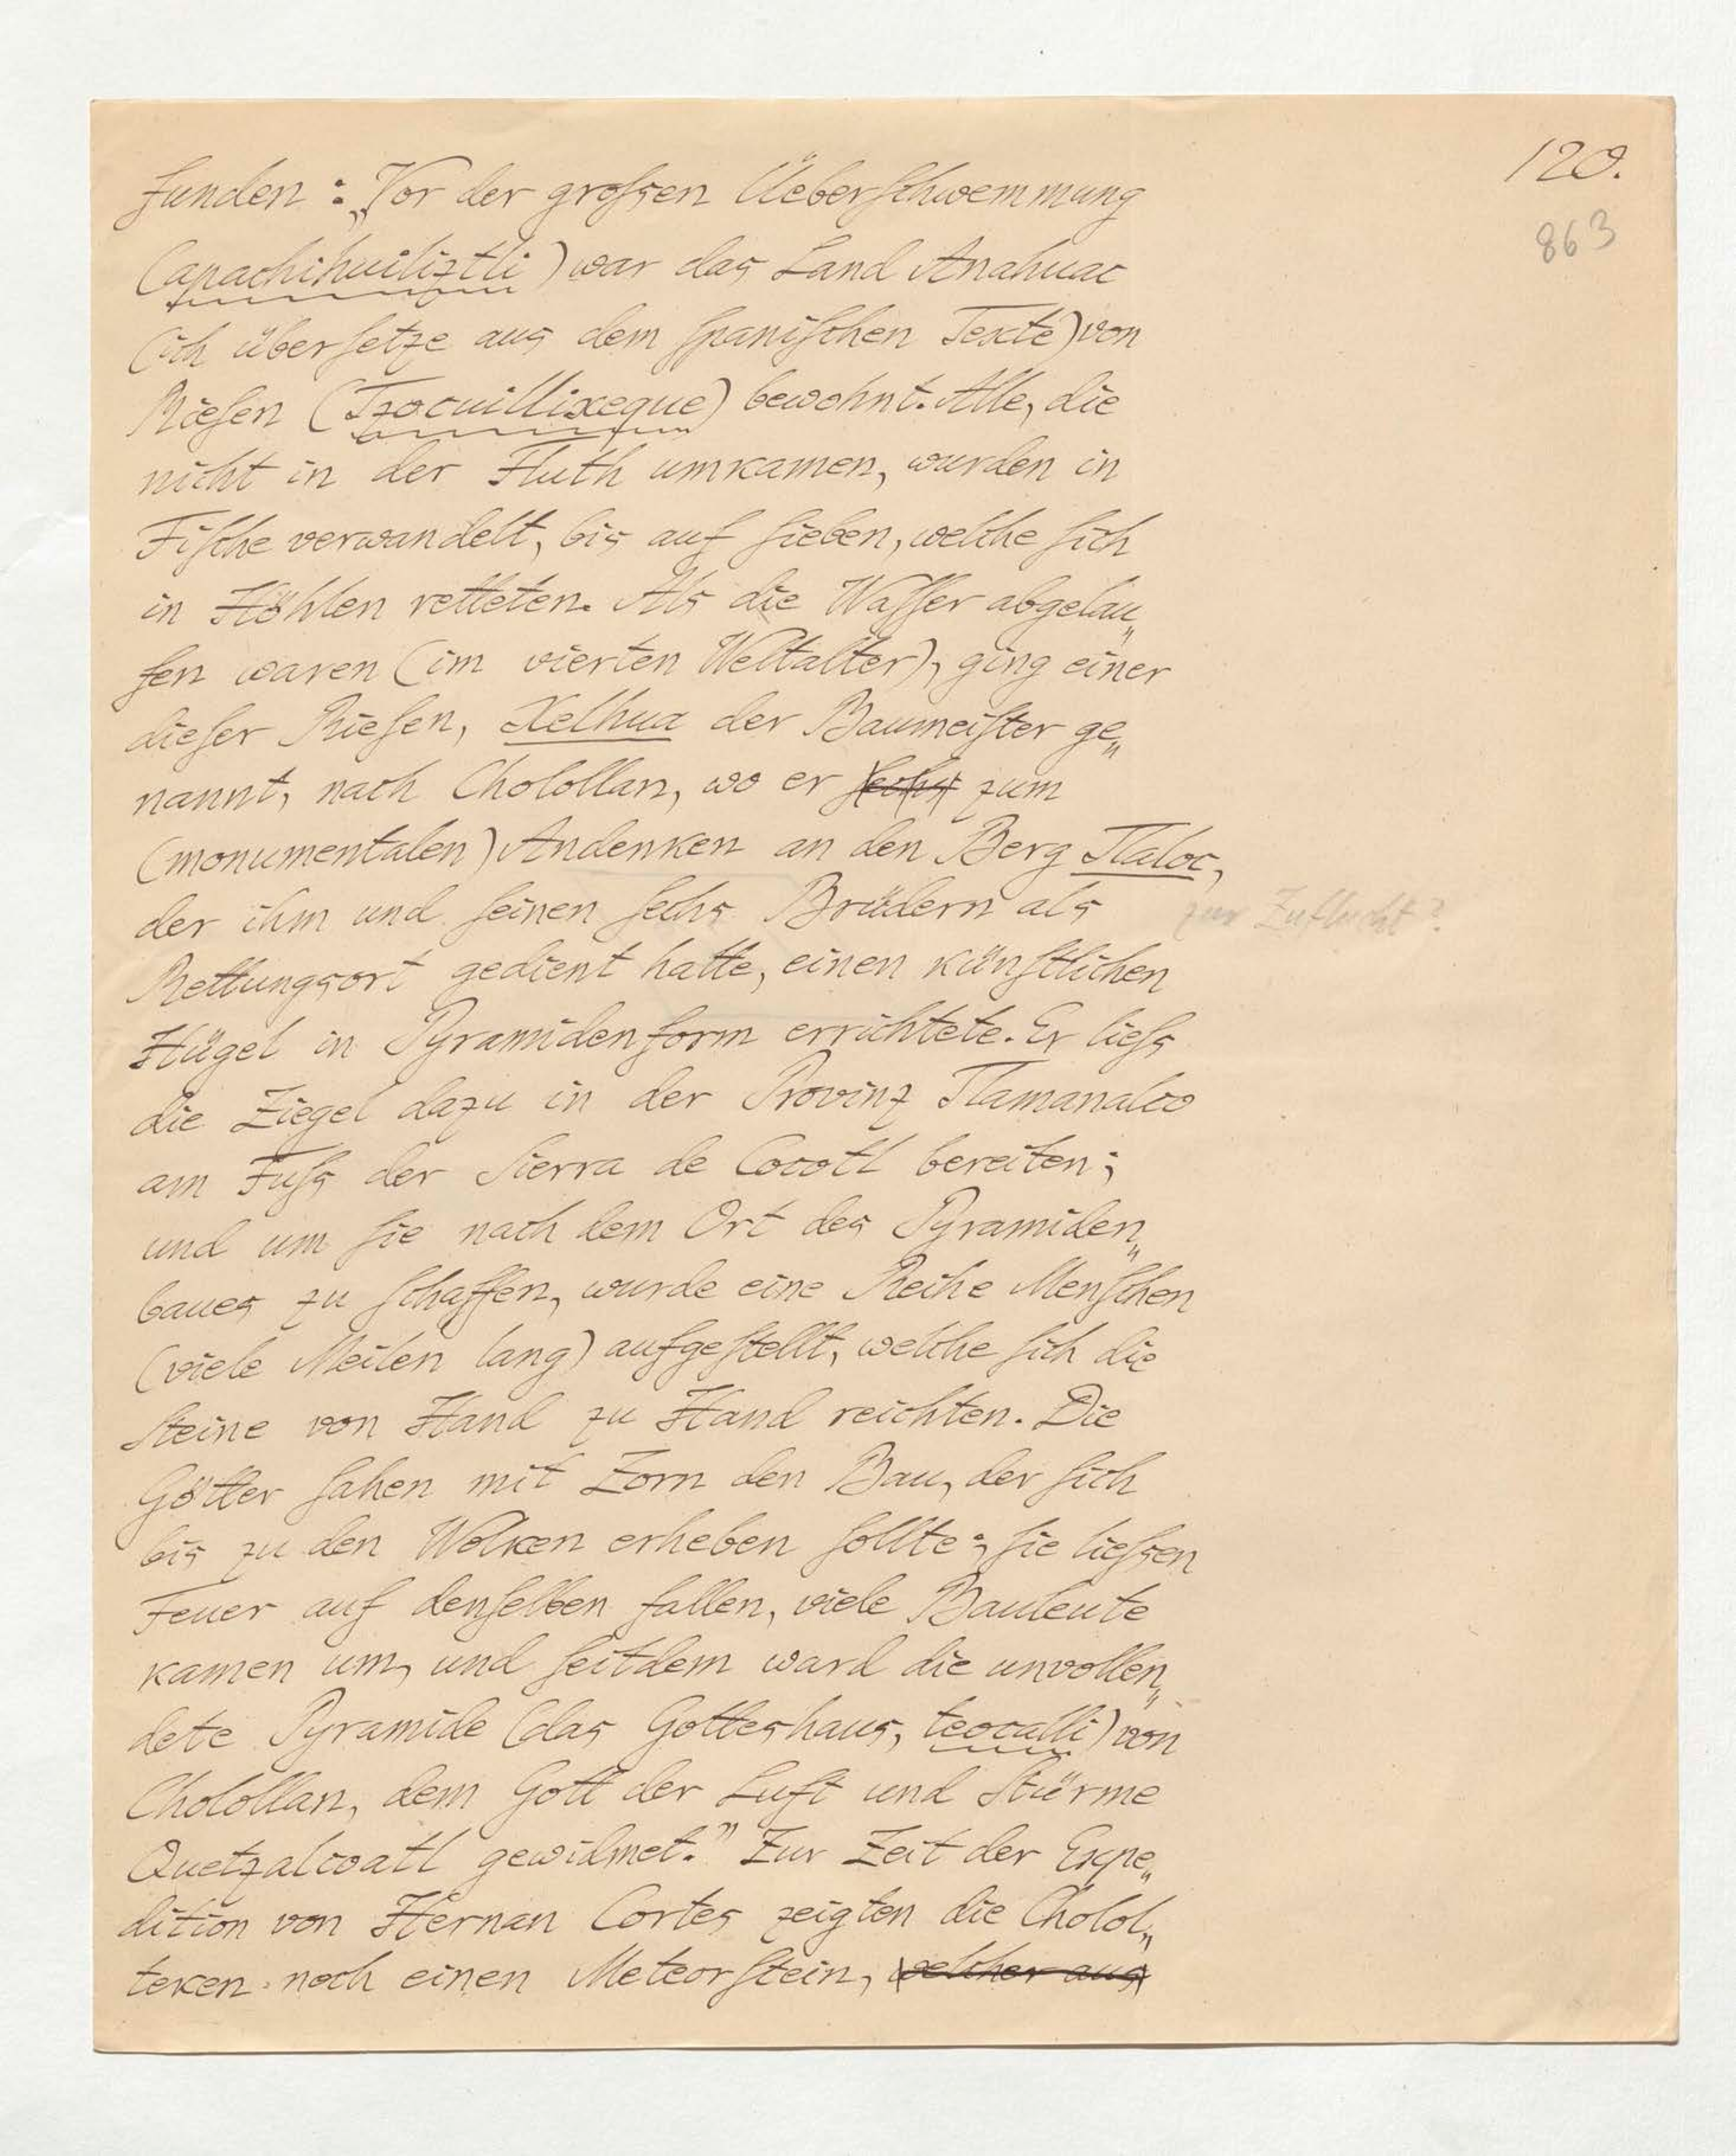 120.
863
funden: „Vor der grossen Üeberschwemmung
(apachihuiliztli) war das Land Anahuac
(ich übersetze aus dem spanischen Texte) von
Riesen (Tzocuillixeque) bewohnt. Alle, die
nicht in der Fluth umkamen, wurden in
Fische verwandelt, bis auf sieben, welche sich
in Höhlen retteten. Als die Wasser abgelau„
fen waren (im vierten Weltalter), ging einer
dieser Riesen, Xelhua der Baumeister ge„
nannt, nach Cholollan, wo er sechs zum
(monumentalen) Andenken an den Berg Tlaloc,
der ihm und seinen sechs Brüdern als
zur Zuflucht?
Rettungsort gedient hatte, einen künstlichen
Hügel in Pyramidenform errichtete. Er liess
die Ziegel dazu in der Provinz Tlamanalco
am Fuss der Sierra de Cocotl bereiten;
und um sie nach dem Ort des Pyramiden„
baues zu schaffen, wurde eine Reihe Menschen
(viele Meilen lang) aufgestellt, welche sich die
Steine von Hand zu Hand reichten. Die
Götter sahen mit Zorn den Bau, der sich
bis zu den Wolken erheben sollte; sie liessen
Feuer auf denselben fallen, viele Bauleute
kamen um, und seitdem ward die unvollen„
dete Pyramide (das Gotteshaus, teocalli) von
Cholollan, dem Gott der Luft und Stürme
Quetzalcoatl gewidmet.” Zur Zeit der Expe„
dition von Hernan Cortes zeigten die Cholol„
teken noch einen Meteorstein, welcher aus